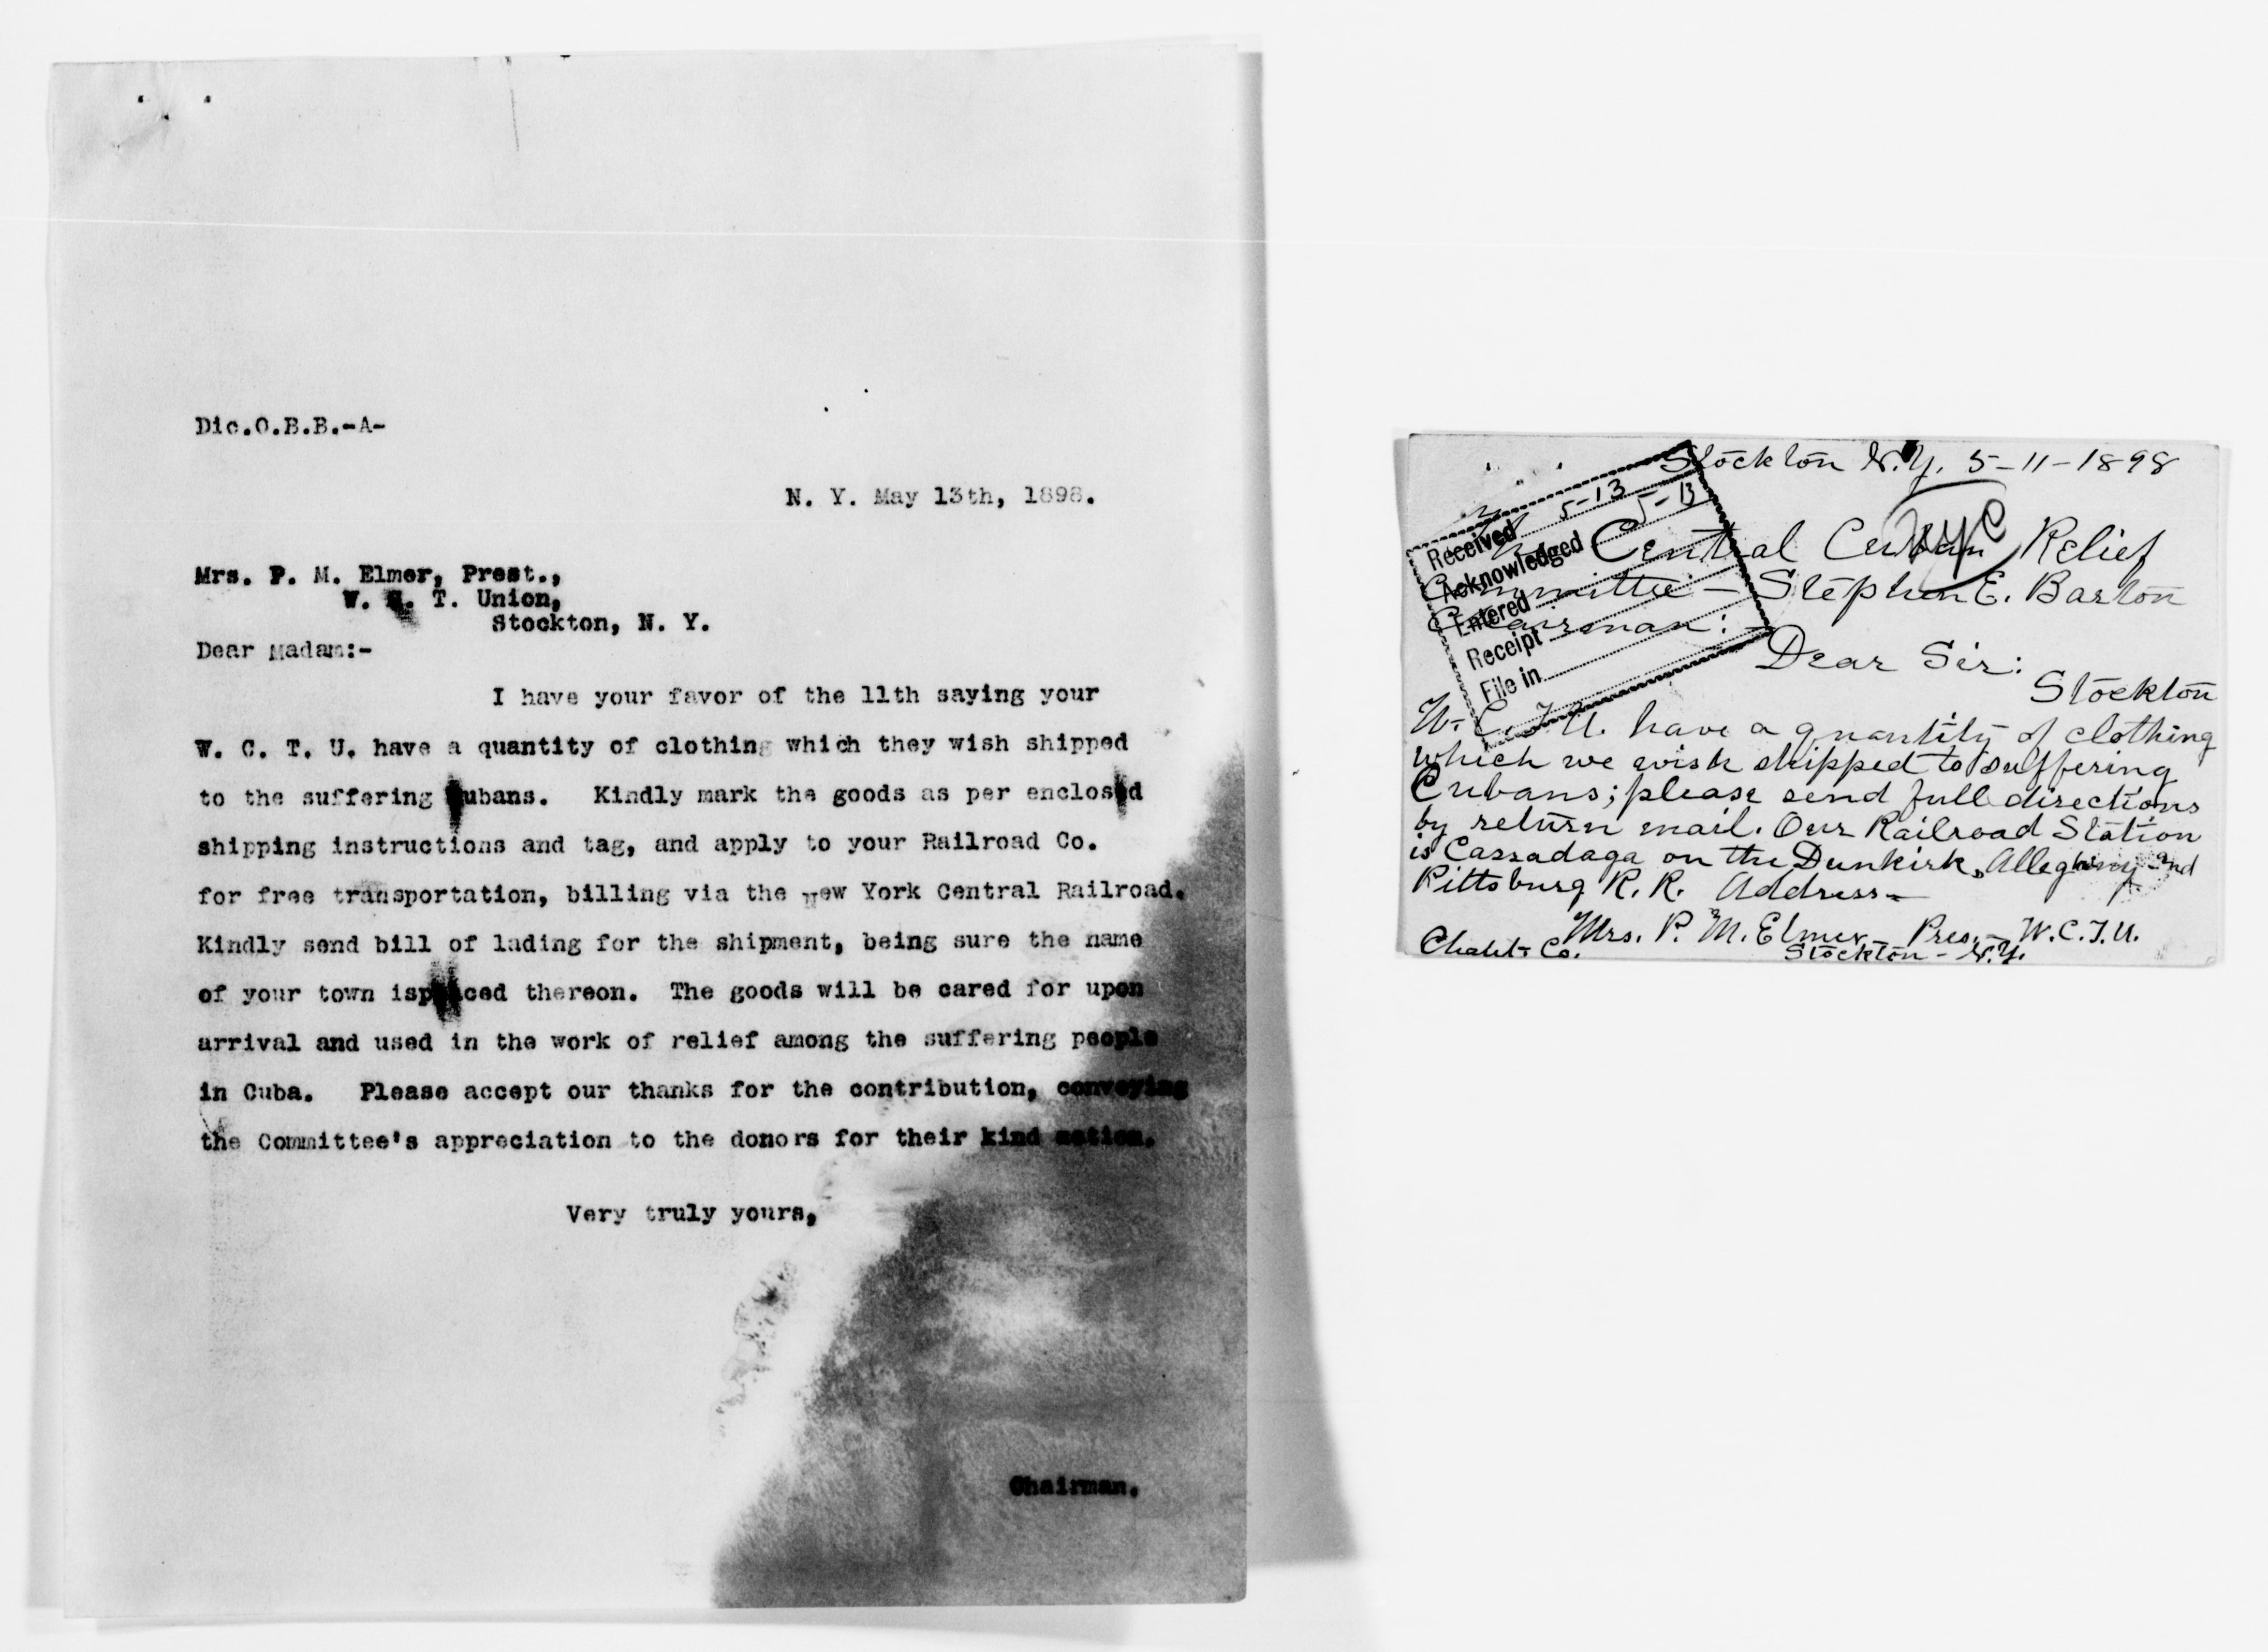 Dic.O.B.B.-A-
N. Y. May 13th, 1898.
Mrs. P. M. Elmer, Prest.,
W. C. T. Union,
Stockton, N. Y.
Dear Madam:-
I have your favor of the 11th saying your
W. C. T. U. have a quantity of clothing which they wish shipped
to the suffering Cubans. Kindly mark the goods as per enclosed
shipping instructions and tag, and apply to your Railroad Co.
for free transportation, billing via the New York Central Railroad.
Kindly send bill of lading for the shipment, being sure the name
of your town isplaced thereon. The goods will be cared for upon
arrival and used in the work of relief among the suffering people
in Cuba. Please accept our thanks for the contribution, conveying
the Committee's appreciation to the donors for their kind action.
Very truly yours,
Chairman.
Stockton N.Y. 5-11-1898
Received 5-13
Acknowledged 5-13
Entered
Receipt
File in
NYC
Central Cuban Relief
Committee - Stephen E. Barton
Chairman:
Dear Sir:
Stockton
W. C. T. U. have a quantity of clothing
which we wish shipped to suffering
Cubans; please send full directions
by return mail. Our Railroad Station
is Cassadaga on the Dunkirk, Allegheny and
Pittsburg R. R. Address-
Mrs. P. M. Elmer - Pres. - W.C.T.U.
Chaut. Co. Stockton - N.Y.